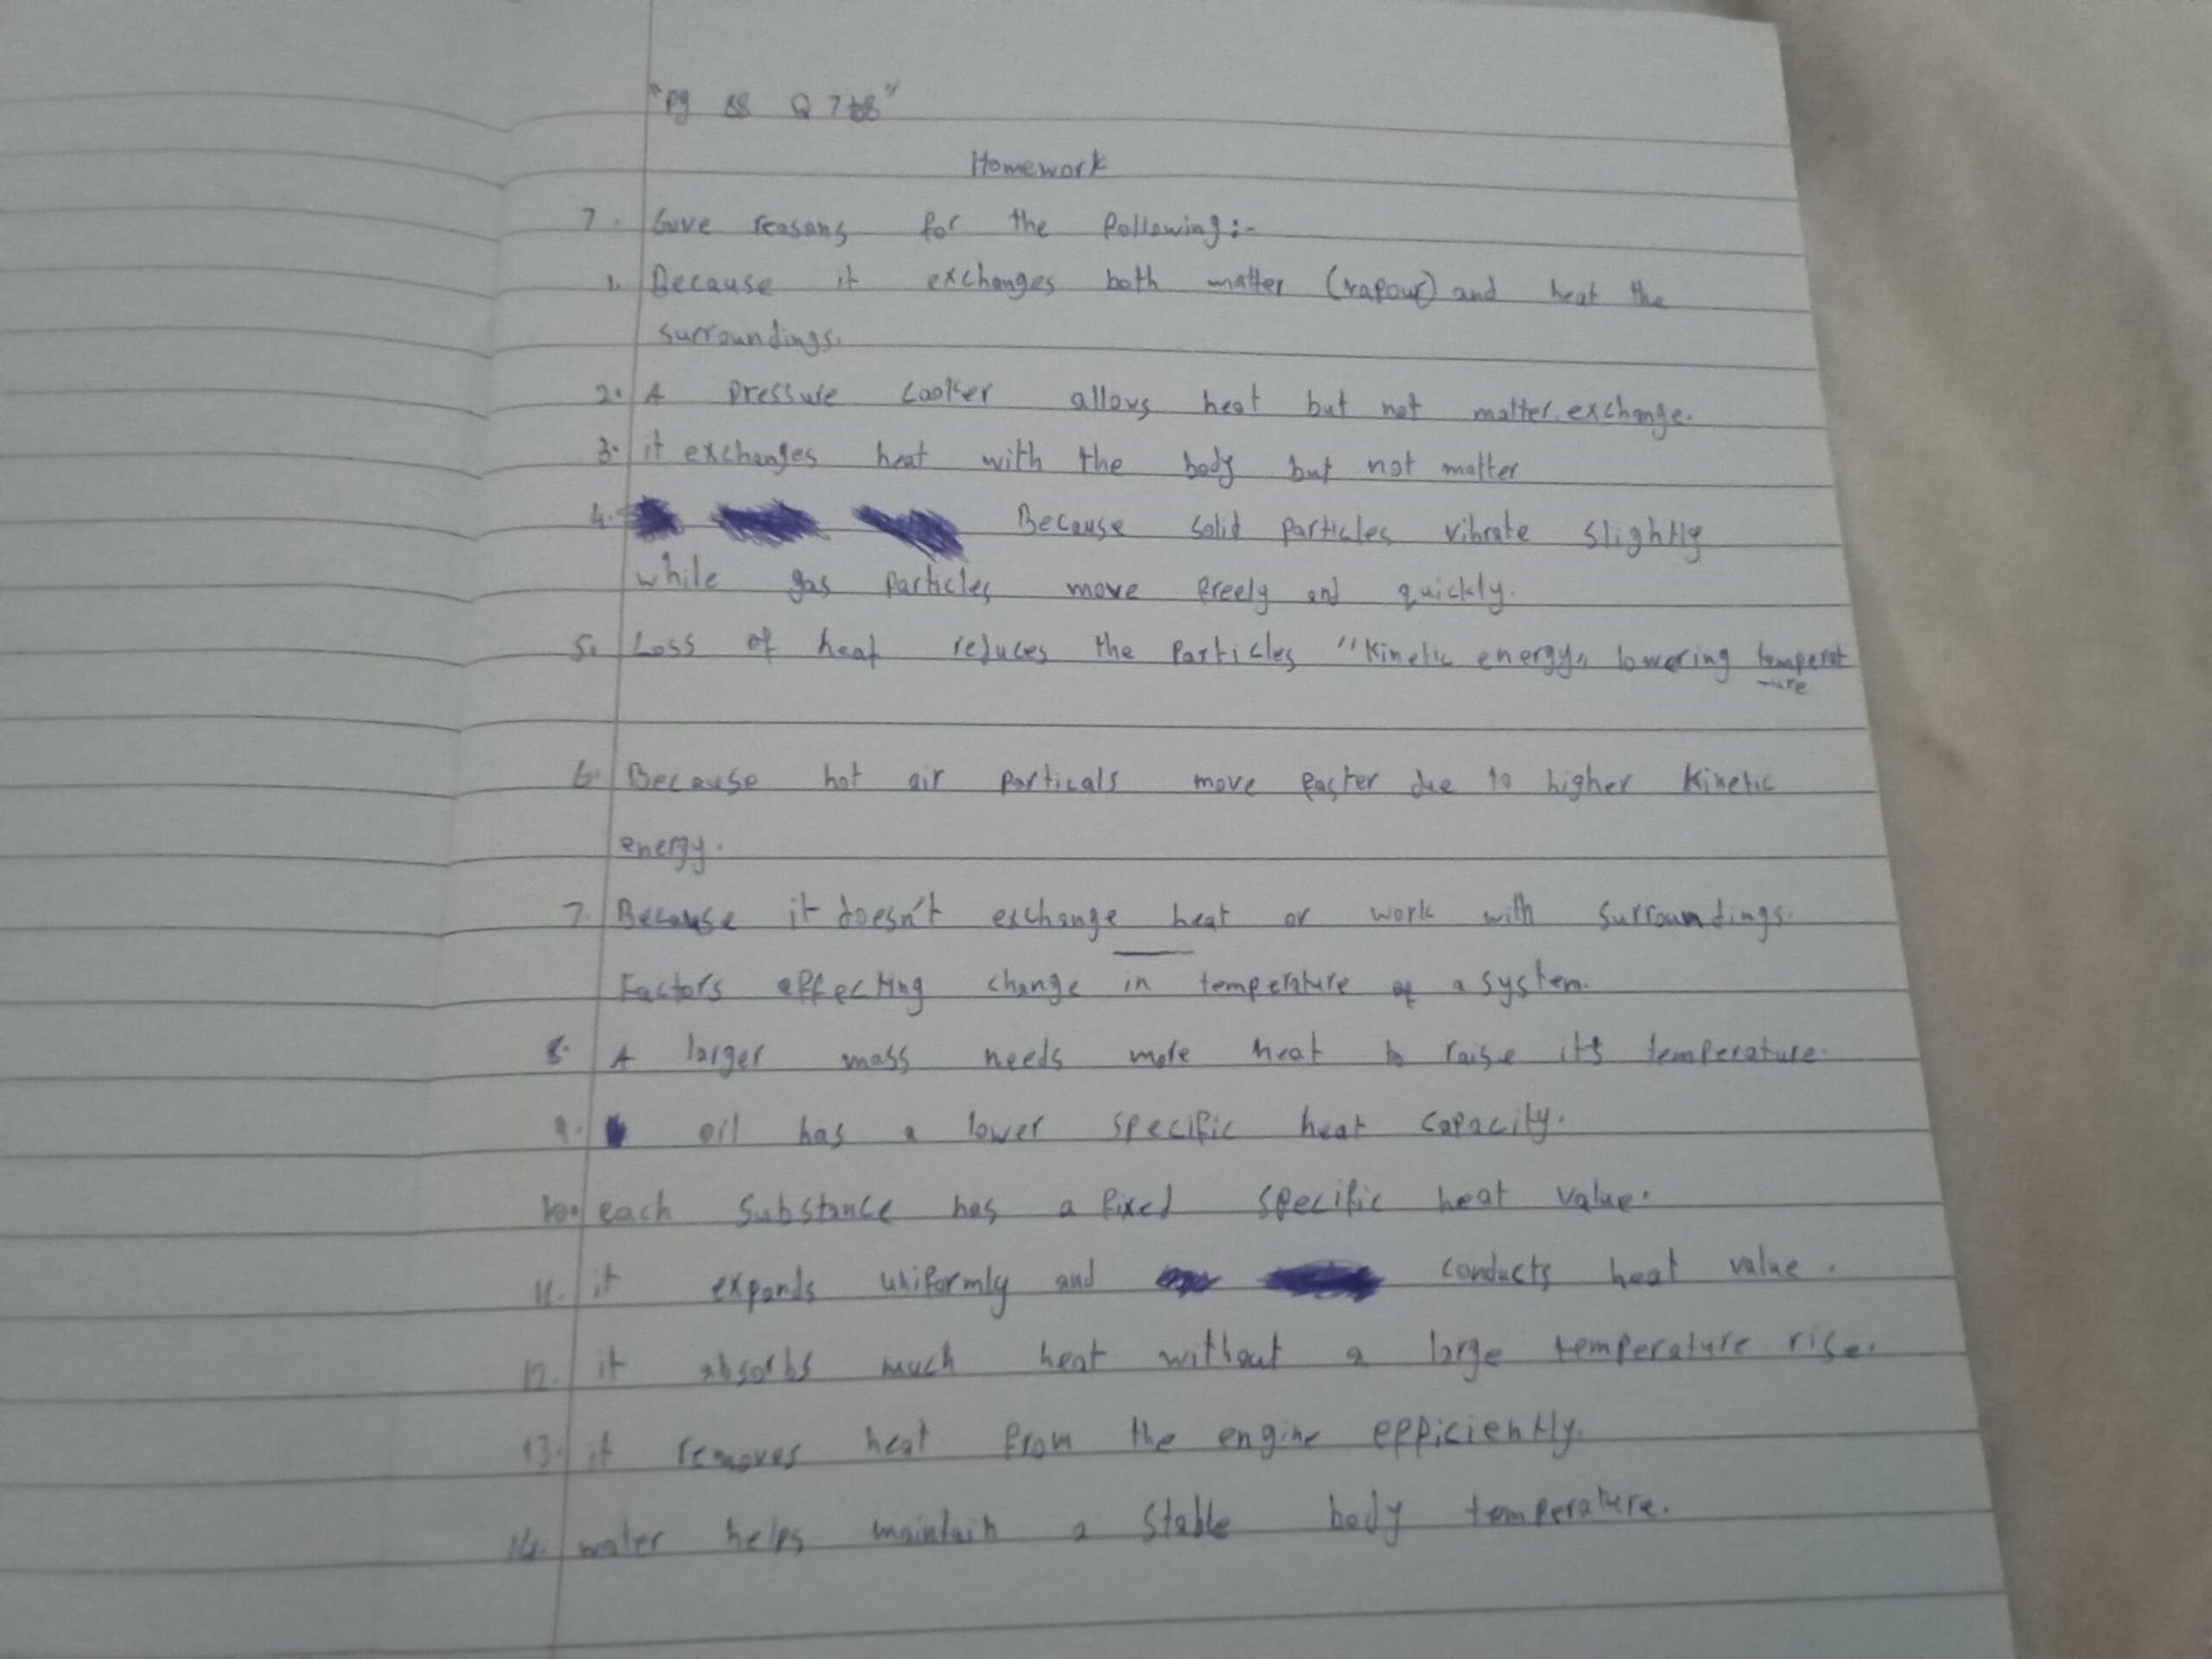 "Pg 88 Q 7
Homework
7. Give reasons for the following:-
1. Because it exchanges both matter (vapour) and heat the
surroundings.
2. A pressure cooker allows heat but not matter exchange.
3. it exchanges heat with the body but not matter
4. Because solid particles vibrate slightly
while gas particles move freely and quickly.
5. Loss of heat reduces the particles "Kinetic energy" lowering temperat
-ure
6. Because hot air particals move faster due to higher kinetic
energy.
7. Because it doesn't exchange heat or work with surroundings.
Factors affecting change in temperature of a system.
8. A larger mass needs more heat to raise its temperature.
9. oil has a lower specific heat capacity.
10. each substance has a fixed specific heat value.
11. it expands uniformly and conducts heat value.
12. it absorbs much heat without a large temperature rise.
13. it removes heat from the engine efficiently.
14. water helps maintain a stable body temperature.